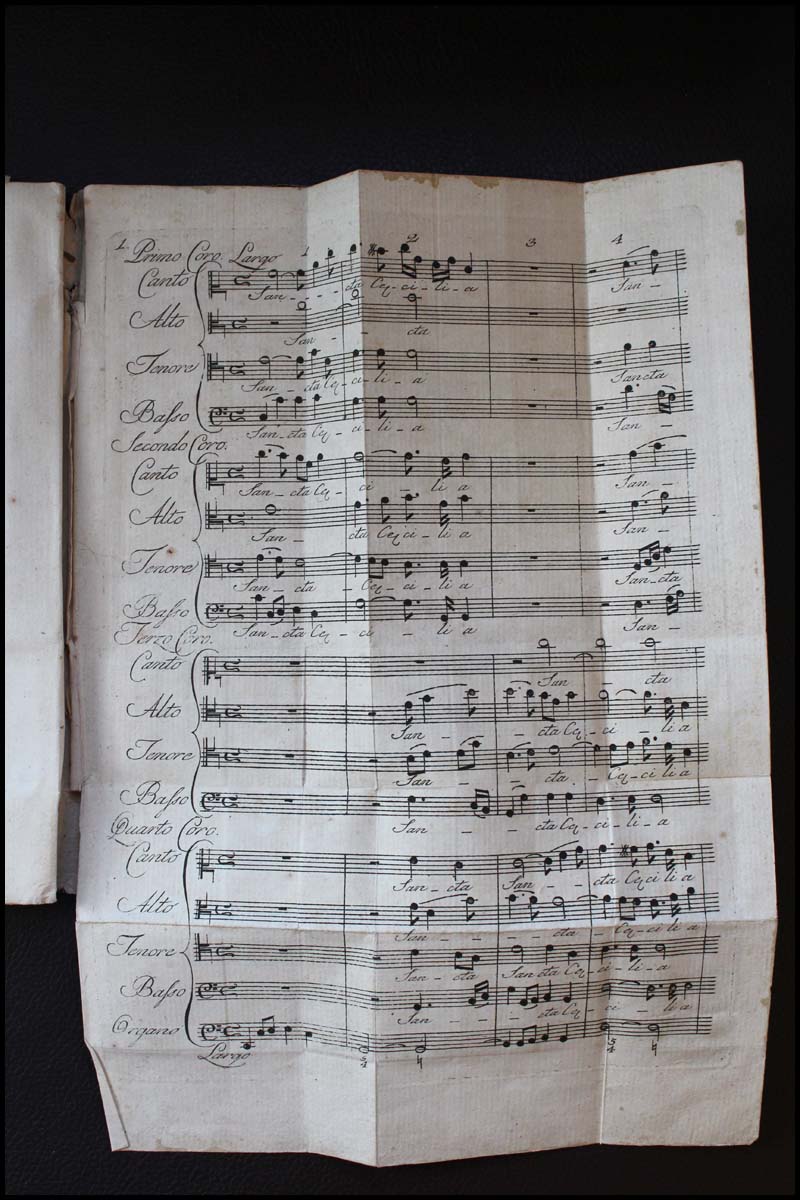 1. Primo Coro. Largo 1 2 3 4
Canto
San - - - cta Ceci - li - a San -
Alto
San - - cta
Tenore
San - cta Ce - ci - li - a Sancta
Basso
San - cta Ce - ci - li - a San -
Secondo Coro.
Canto
San - cta Ce - ci - li a San -
Alto
San - cta Ce ci - li a San -
Tenore
San - cta - Ce - ci - li a San - cta
Basso
San - cta Ce - ci - li a San -
Terzo Coro.
Canto
San - cta
Alto
San - - - cta Ce - ci - li a
Tenore
San - - cta - Ce - ci li a
Basso
San - - cta Ce - ci - li - a
Quarto Coro.
Canto
San - cta San - - cta Ce ci li a
Alto
San - - - - cta - Ce - ci li a
Tenore
San - cta San cta Ce - ci - li - a
Basso
San - - - cta Ce - ci - li a
Organo
Largo 5 4 5 4